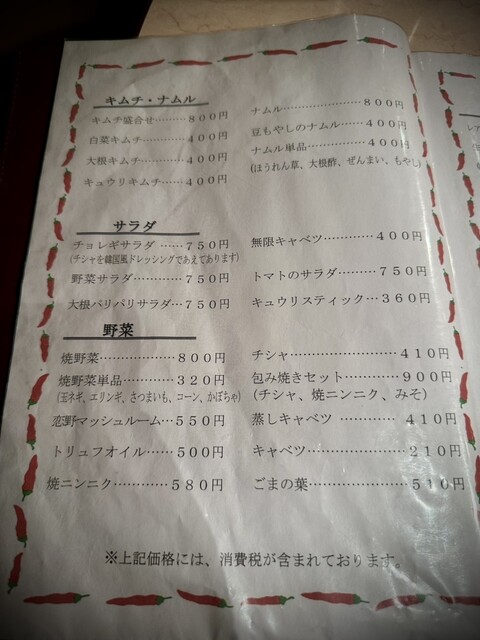 キムチ・ナムル
キムチ盛合せ………８００円
白菜キムチ………４００円
大根キムチ………４００円
キュウリキムチ……４００円
ナムル…………………８００円
豆もやしのナムル……４００円
ナムル単品……………４００円
(ほうれん草、大根酢、ぜんまい、もやし)
サラダ
チョレギサラダ ……７５０円
(チシャを韓国風ドレッシングであえてあります)
野菜サラダ…………７５０円
大根パリパリサラダ…７５０円
無限キャベツ…………４００円
トマトのサラダ………７５０円
キュウリスティック…３６０円
野菜
焼野菜………………８００円
焼野菜単品…………３２０円
(玉ネギ、エリンギ、さつまいも、コーン、かぼちゃ)
恋野マッシュルーム…５５０円
トリュフオイル……５００円
焼ニンニク…………５８０円
チシャ…………………４１０円
包み焼きセット………９００円
(チシャ、焼ニンニク、みそ)
蒸しキャベツ ………４１０円
キャベツ………………２１０円
ごまの葉………………５１０円
※上記価格には、消費税が含まれております。